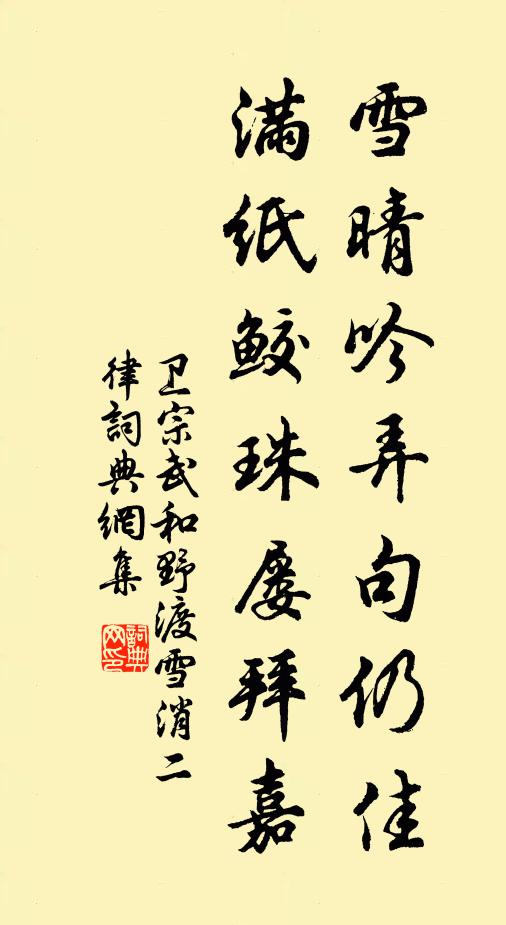 雪晴吟弄句仍佳
满纸鲛珠屡拜嘉
卫宗武和野渡雪消二
律詞典網集
詞典网印